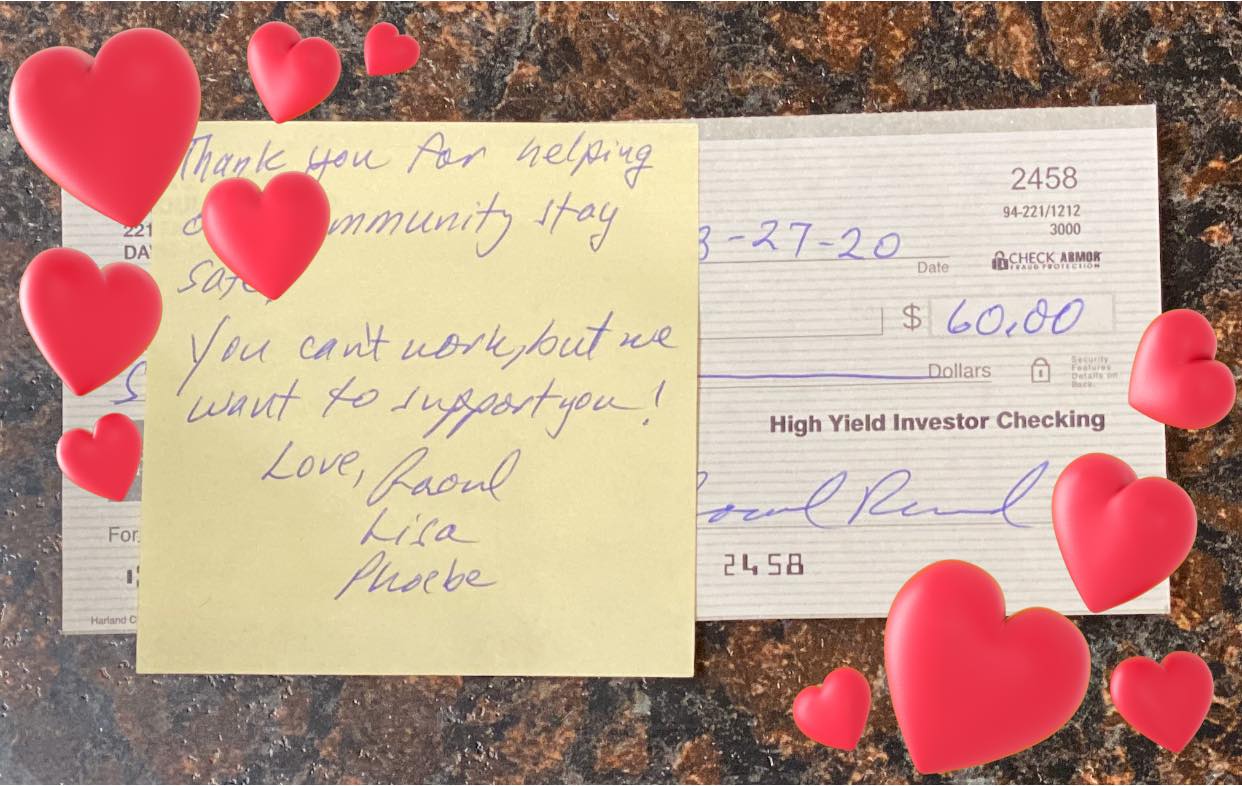 Thank you for helping
community stay
safe,
You can't work, but we
want to support you!
Love, Raoul
Lisa
Phoebe
221
DA
For
Harland C
2458
94-221/1212
3000
3-27-20
Date
CHECK ARMOR
FRAUD PROTECTION
$ 60.00
Dollars
Security
Features
Details on
Back.
High Yield Investor Checking
2458